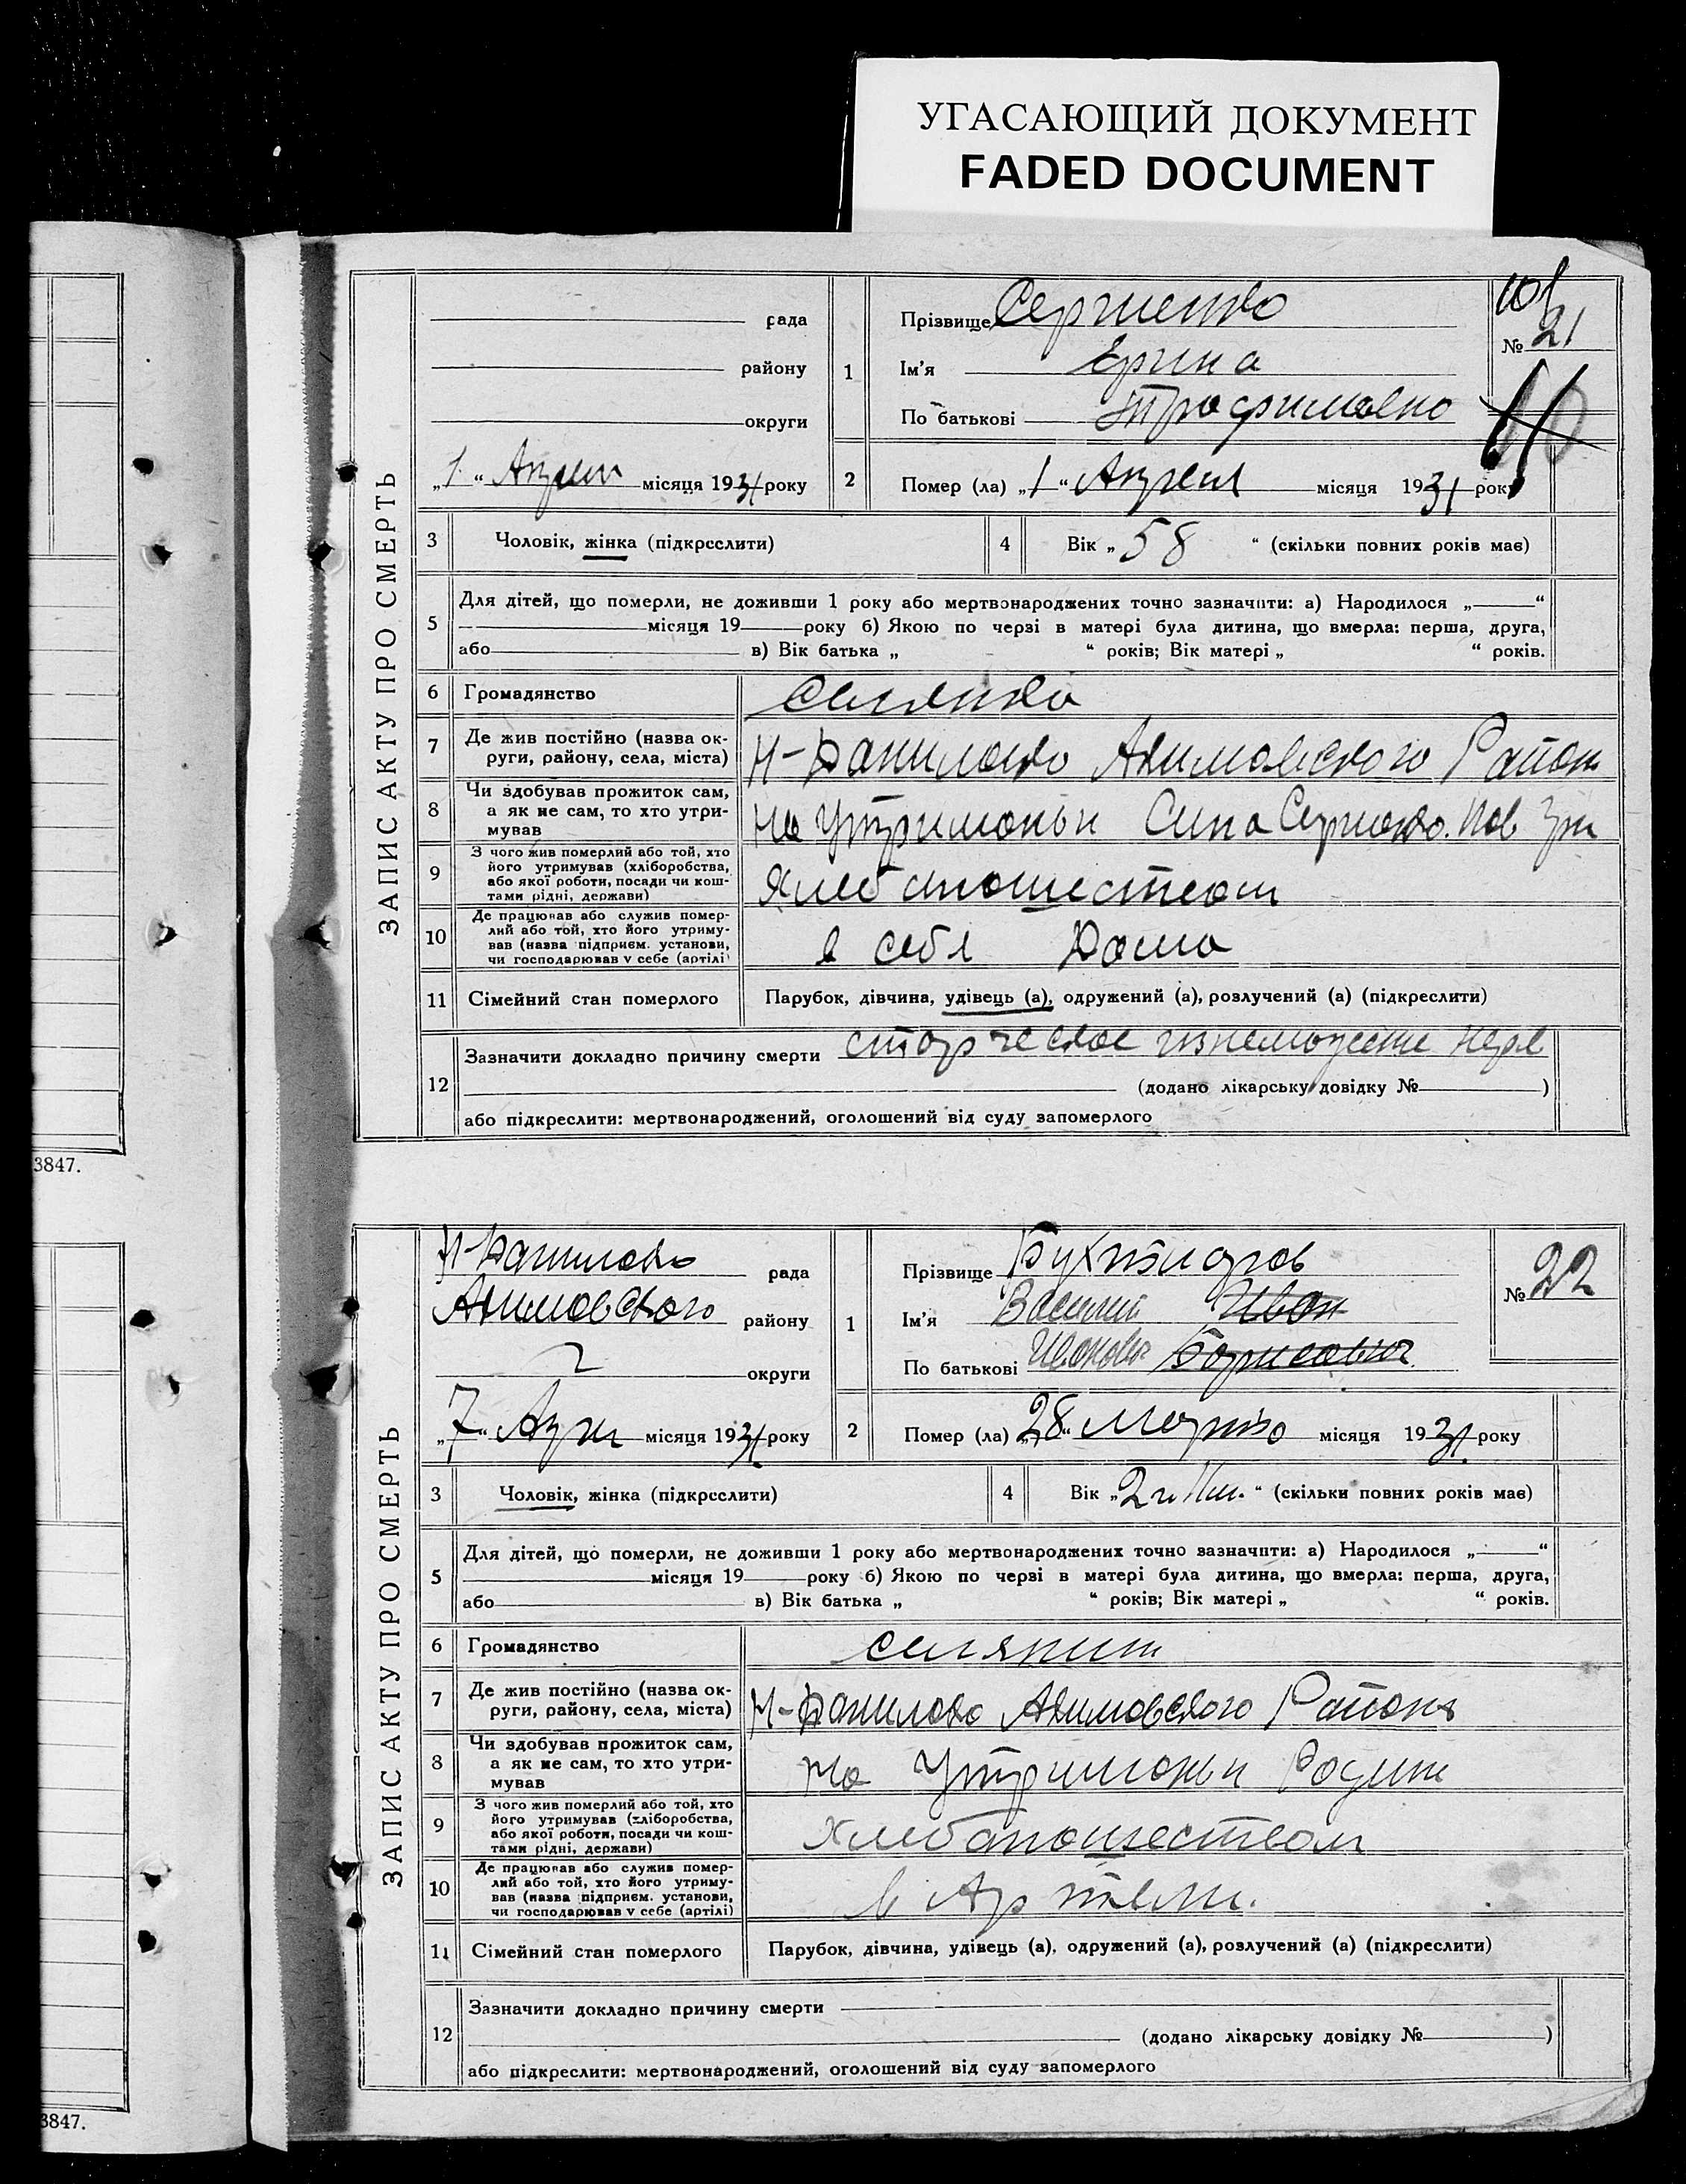 УГАСАЮЩИЙ ДОКУМЕНТ
FADED DOCUMENT
ЗАПИС АКТУ ПРО СМЕРТЬ
рада
району
округи
„1“ Апреля місяця 1931 року
1
Прізвище Сергиенко
Ім'я Ерина
По батькові Трофимовно
№ 21
2
Помер (ла) „1“ Апреля місяця 1931 року
3 Чоловік, жінка (підкреслити)
4 Вік „58“ (скільки повних років має)
5 Для дітей, що померли, не доживши 1 року або мертвонароджених точно зазначити: а) Народилося „ “
місяця 19 року б) Якою по черзі в матері була дитина, що вмерла: перша, друга,
або в) Вік батька „ “ років; Вік матері „ “ років.
6 Громадянство селянка
7 Де жив постійно (назва ок-
руги, району, села, міста) Н-Даниловко Акимовского Район
8 Чи здобував прожиток сам,
а як не сам, то хто утри-
мував
На Утриманьи Сина
9 З чого жив померлий або той, хто
його утримував (хліборобства,
або якої роботи, посади чи кош-
тами рідні, держави)
10 Де працював або служив помер-
лий або той, хто його утриму-
вав (назва підприєм. установи,
чи господарював у себе (артілі)
в себя Дома
11 Сімейний стан померлого Парубок, дівчина, удівець (а), одружений (а), розлучений (а) (підкреслити)
12 Зазначити докладно причину смерти старческое изнеможение
(додано лікарську довідку № )
або підкреслити: мертвонароджений, оголошений від суду запомерлого
3847.
ЗАПИС АКТУ ПРО СМЕРТЬ
Н-Даниловко рада
Акимовского району
округи
„7“ місяця 1931 року
1
Прізвище Бухтияров
Ім'я Василий Иван
По батькові Иванович Борисович
№ 22
2
Помер (ла) „28“ Марта місяця 1931 року
3 Чоловік, жінка (підкреслити)
4 Вік „2 “ (скільки повних років має)
5 Для дітей, що померли, не доживши 1 року або мертвонароджених точно зазначити: а) Народилося „ “
місяця 19 року б) Якою по черзі в матері була дитина, що вмерла: перша, друга,
або в) Вік батька „ “ років; Вік матері „ “ років.
6 Громадянство селянин
7 Де жив постійно (назва ок-
руги, району, села, міста) Н-Даниловко Акимовского Района
8 Чи здобував прожиток сам,
а як не сам, то хто утри-
мував
На Утриманьи
9 З чого жив померлий або той, хто
його утримував (хліборобства,
або якої роботи, посади чи кош-
тами рідні, держави)
10 Де працював або служив помер-
лий або той, хто його утриму-
вав (назва підприєм. установи,
чи господарював у себе (артілі)
в Артели.
11 Сімейний стан померлого Парубок, дівчина, удівець (а), одружений (а), розлучений (а) (підкреслити)
12 Зазначити докладно причину смерти
(додано лікарську довідку № )
або підкреслити: мертвонароджений, оголошений від суду запомерлого
3847.